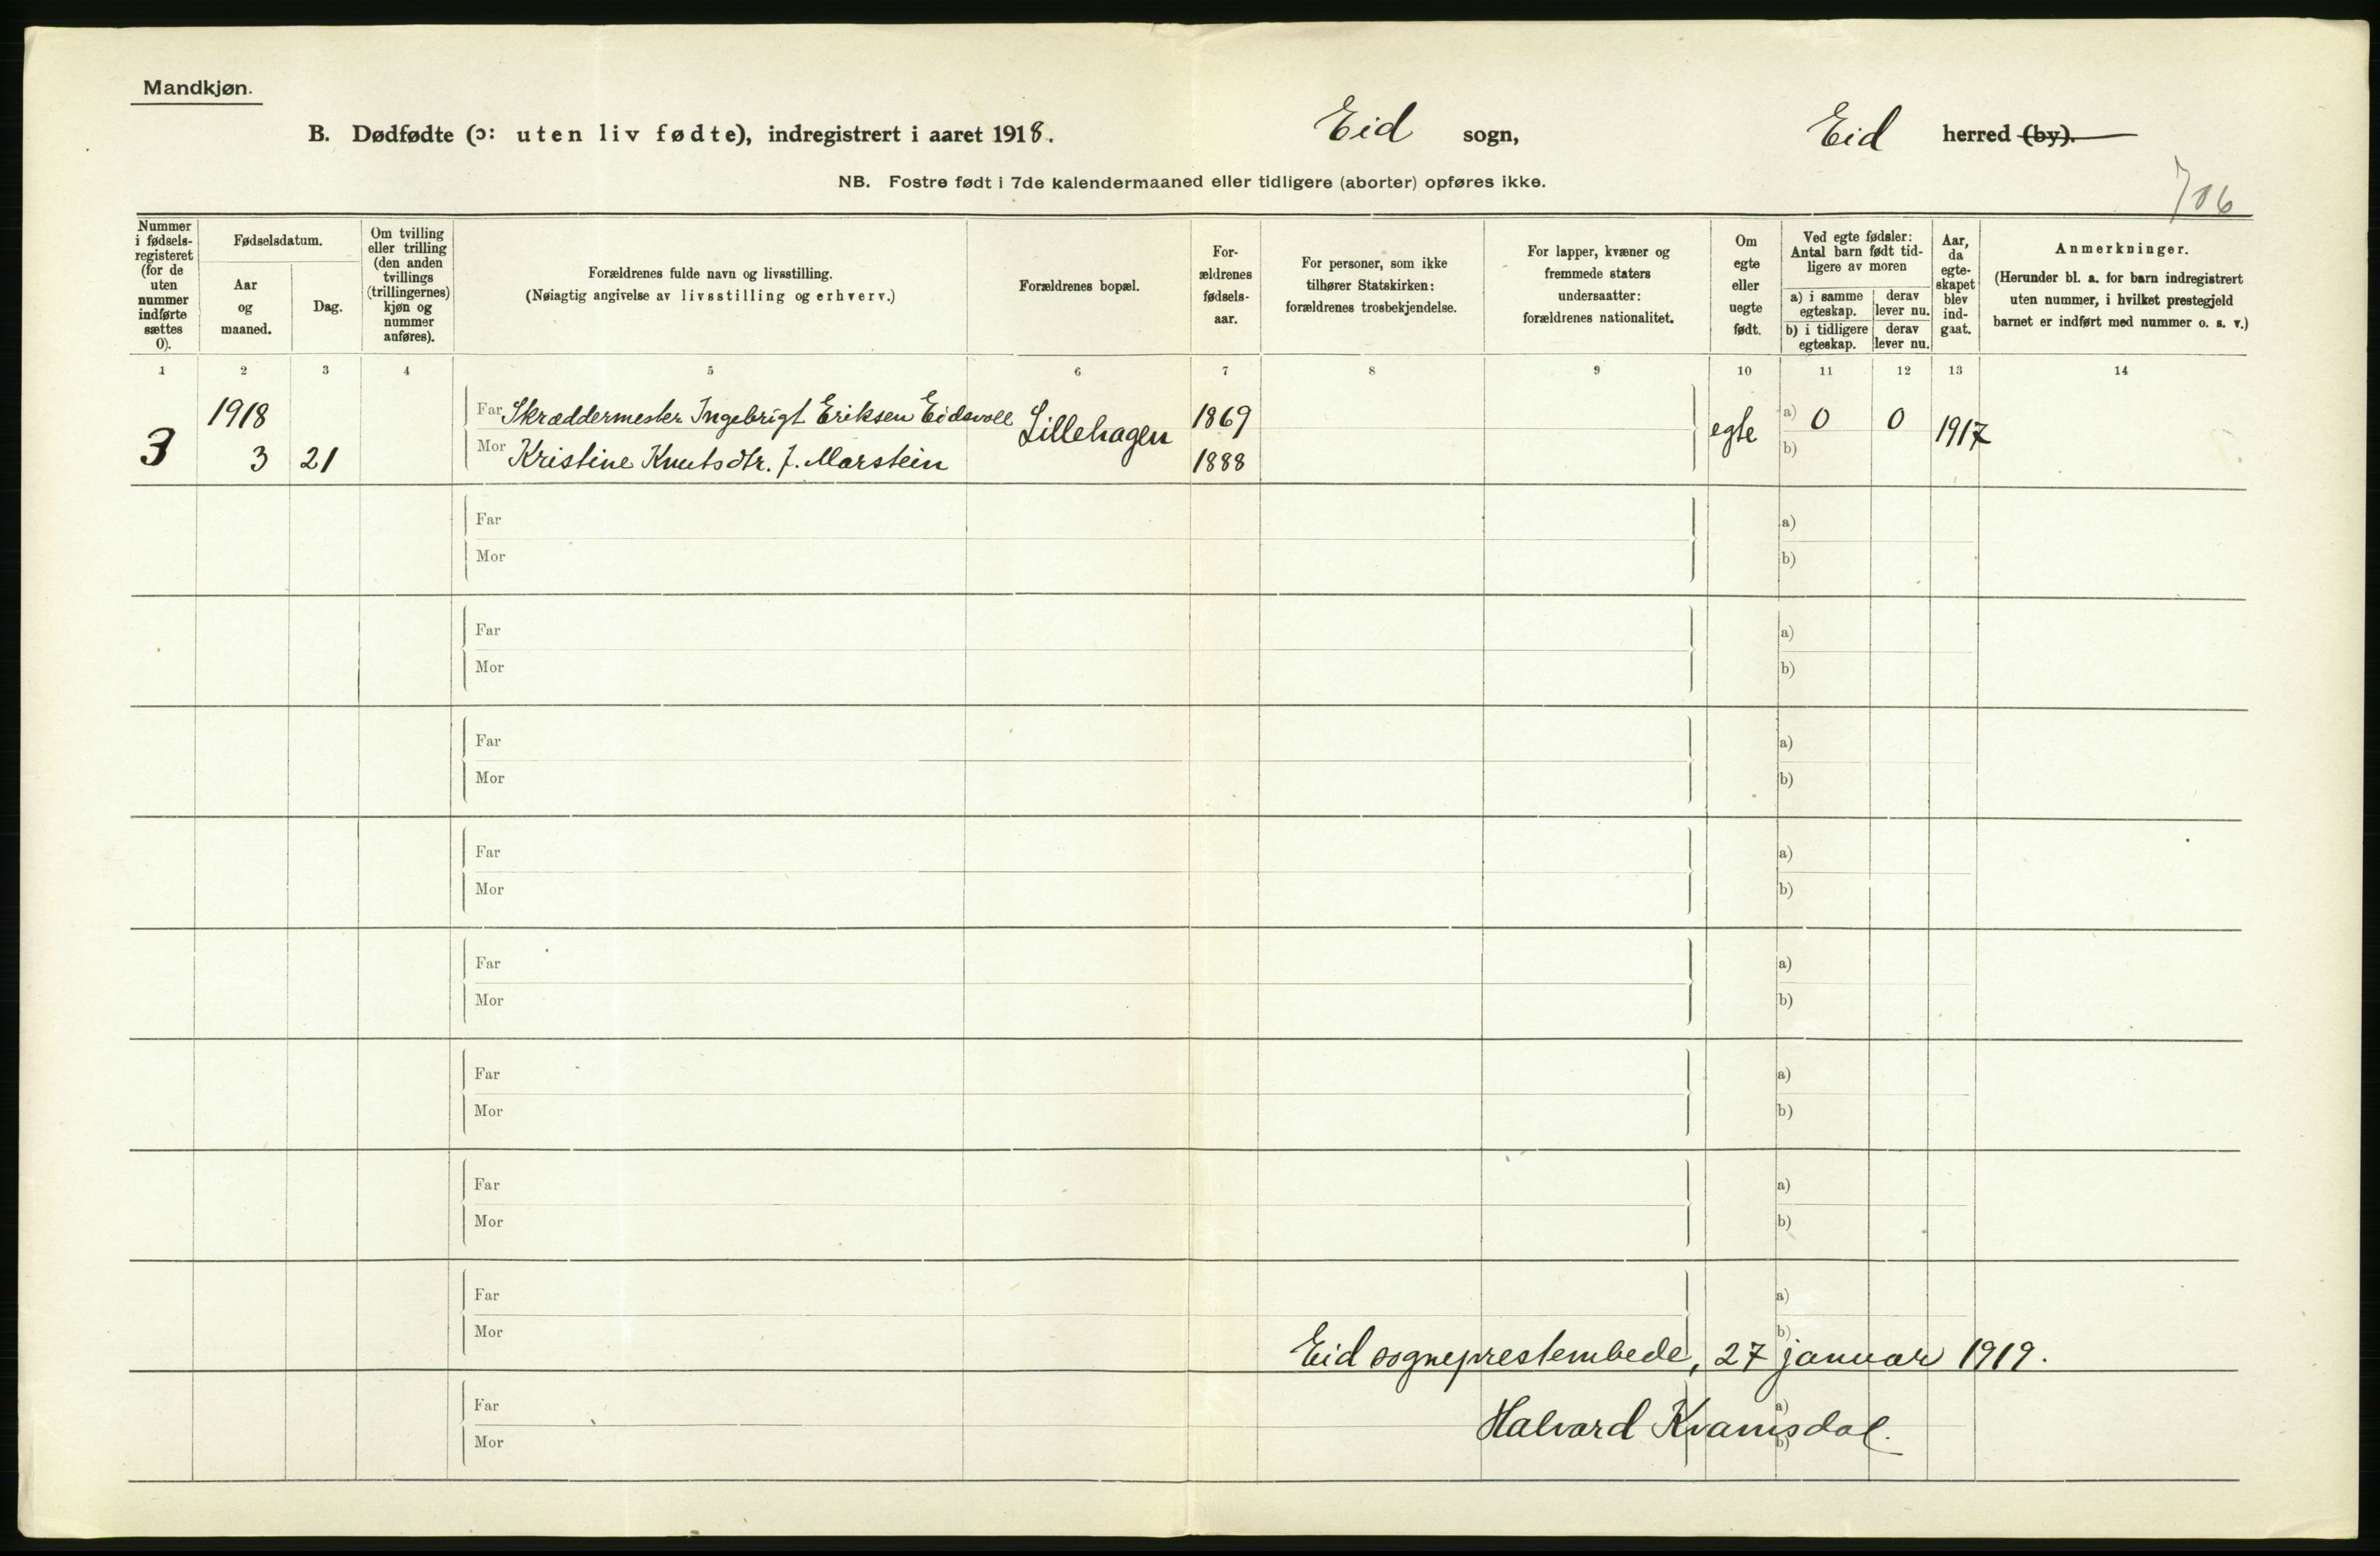 Mandkjøn.
B. Dødfødte (ɔ: uten liv fødte), indregistrert i aaret 1918. Eid sogn, Eid herred (by).
NB. Fostre født i 7de kalendermaaned eller tidligere (aborter) opføres ikke.
706
Nummer
i fødsels-
registeret
(for de
uten
nummer
indførte
sættes
0).
Fødselsdatum.
Aar
og
maaned.
Dag.
Om tvilling
eller trilling
(den anden
tvillings
(trillingernes)
kjøn og
nummer
anføres).
Forældrenes fulde navn og livsstilling.
(Nøiagtig angivelse av livsstilling og erhverv.)
Forældrenes bopæl.
For-
ældrenes
fødsels-
aar.
For personer, som ikke
tilhører Statskirken:
forældrenes trosbekjendelse.
For lapper, kvæner og
fremmede staters
undersaatter:
forældrenes nationalitet.
Om
egte
eller
uegte
født.
Ved egte fødsler:
Antal barn født tid-
ligere av moren
a) i samme
egteskap.
derav
lever nu.
b) i tidligere
egteskap.
derav
lever nu.
Aar,
da
egte-
skapet
blev
ind-
gaat.
Anmerkninger.
(Herunder bl. a. for barn indregistrert
uten nummer, i hvilket prestegjeld
barnet er indført med nummer o. s. v.)
1 2 3 4 5 6 7 8 9 10 11 12 13 14
3
1918
3 21
Far Skræddermester Ingebrigt Eriksen Eidsvoll
Mor Kristine Knutsdtr. f. Marstein
Lillehagen
1869
1888
egte
a) 0 0
b)
1917
Far a)
Mor b)
Far a)
Mor b)
Far a)
Mor b)
Far a)
Mor b)
Far a)
Mor b)
Far a)
Mor b)
Far a)
Mor b)
Far a)
Mor b)
Eid sogneprestembede, 27 januar 1919.
Far a)
Halvard Kvamsdal.
Mor b)